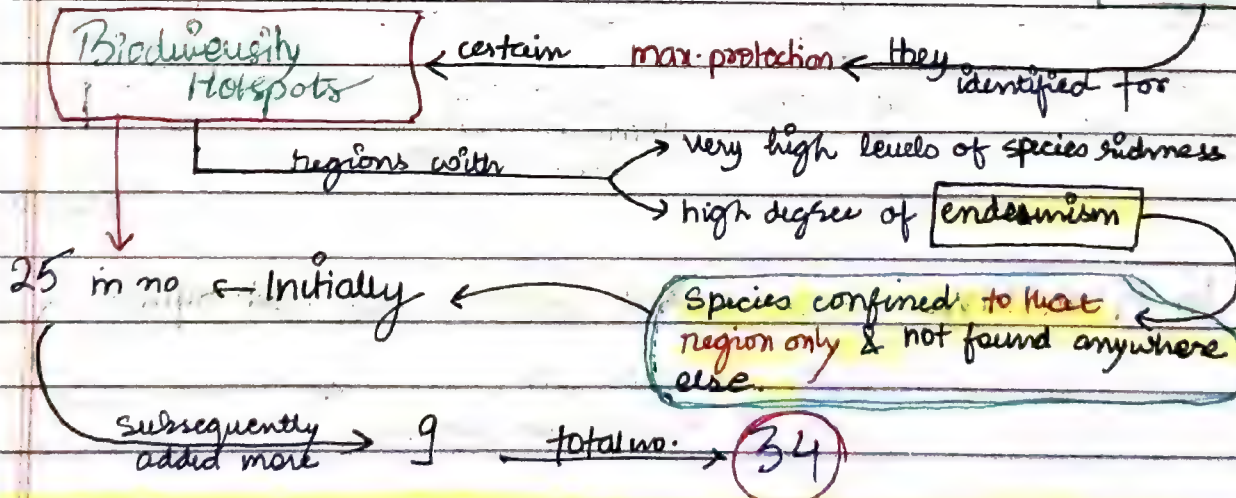 Biodiversity Hotspots ← certain max. protection ← they identified for
regions with → very high levels of species richness
→ high degree of endemism
25 in no ← Initially
Species confined to that
region only & not found anywhere
else.
subsequently added more → 9 total no. → 34